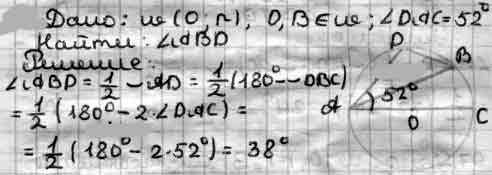 Дано: w (O, r); D, B ∈ w; ∠DAC = 52°
Найти: ∠ABD
Решение:
∠ABD = 1/2 ⌣AD = 1/2 (180° - ⌣DBC)
= 1/2 (180° - 2·∠DAC) =
= 1/2 (180° - 2·52°) = 38°
D
B
A
52°
O
C